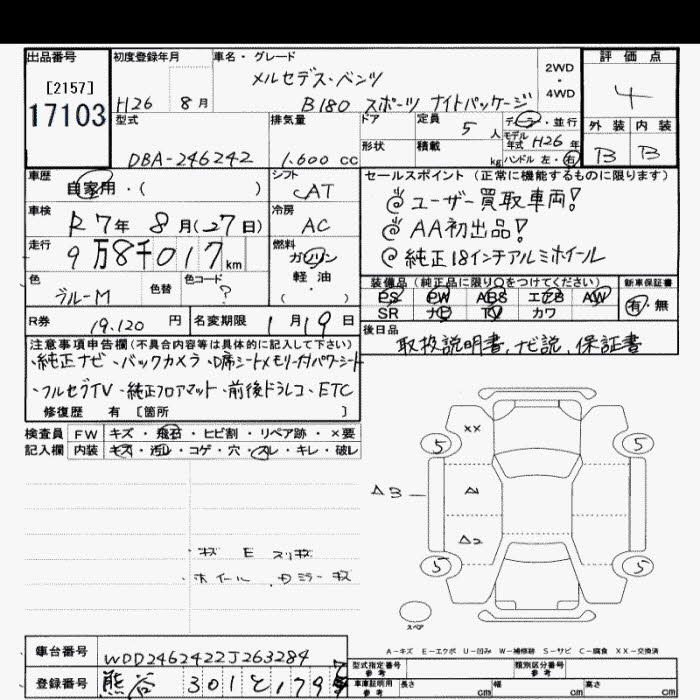 出品番号
[2157]
17103
初度登録年月
H26 8月
車名・グレード
メルセデス・ベンツ
B180 スポーツ ナイトパッケージ
2WD
・
4WD
評価点
4
外装 内装
B B
型式
DBA-246242
排気量
1,600 cc
ドア
形状
定員 5 人
積載 kg
ディーラ・並行
モデル年式 H26 年
ハンドル 左・右
車歴
自家用・( )
シフト
AT
車検
R7年 8月(27日)
冷房
AC
走行
9万8千017km
燃料
ガソリン
軽・油
( )
色
ブルーM
色替
色コード
?
R券 19,120 円
名変期限 1月19日
セールスポイント(正常に機能するものに限ります)
ユーザー買取車両!
AA初出品!
純正18インチアルミホイール
装備品(純正品に限り○をつけてください)
PS PW ABS エアB AW
SR ナビ TV カワ
新車保証書
有・無
後日品
取扱説明書、ナビ説、保証書
注意事項申告欄(不具合内容等は具体的に記入して下さい)
・純正ナビ・バックカメラ・D席シートメモリー付パワーシート
・フルセグTV・純正フロアマット・前後ドラレコ・ETC
修復歴 有 [箇所 ]
検査員 FW キズ・飛石・ヒビ割・リペア跡・×要
記入欄 内装 キズ・汚れ・コゲ・穴・スレ・キレ・破レ
XX
5 5
A3 A
A2
5 5
スペア
・キズ E スリキズ
・ホイール ミラー キズ
A-キズ E-エクボ U-凹み W-補修跡 S-サビ C-腐食 XX-交換済
車台番号 WDD2462422J263284
登録番号 熊谷 301 と 1795
型式指定番号
参考
類別区分番号
参考
車庫証明用
参考
長さ cm 幅 cm 高さ cm